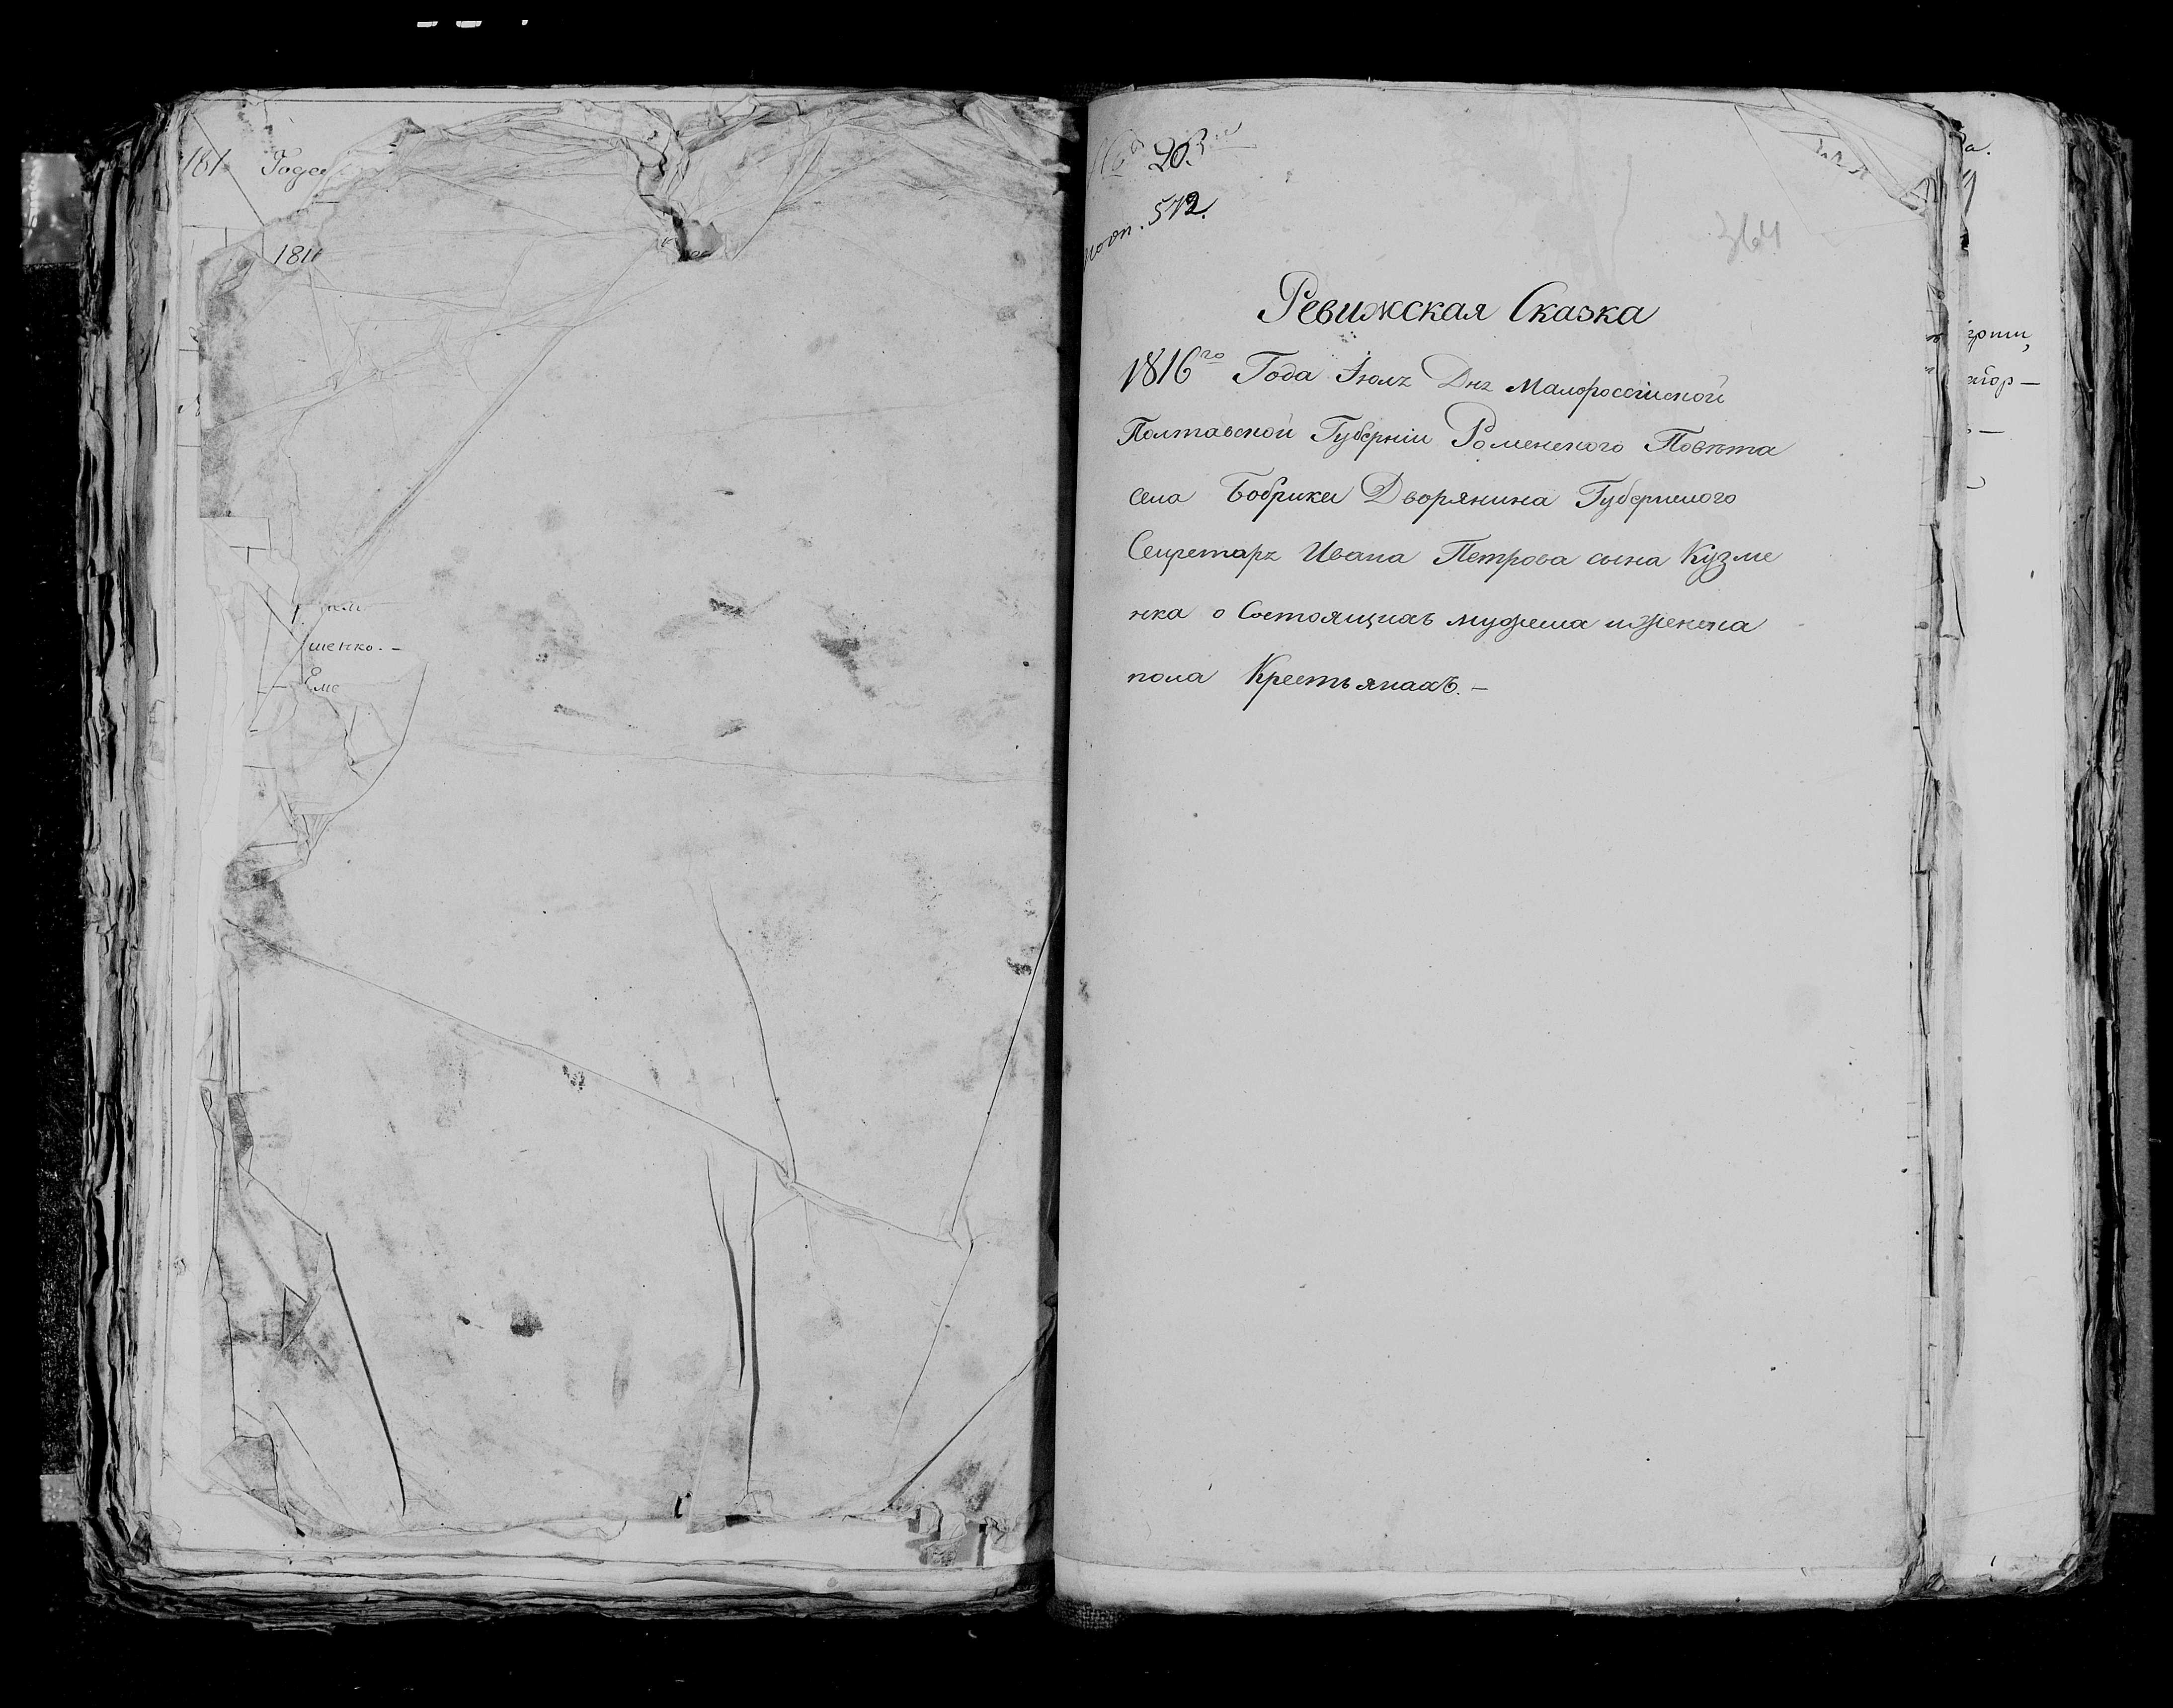 181 Года
1811
шенко. –
Еме
203
попол. 572.
364
Ревижская Сказка
1816го Года Іюля Дня Малороссійской
Полтавской Губерніи Роменского Повѣта
села Бобрика Дворянина Губернского
Секретаря Ивана Петрова сына Кузме
нка о Состоящихъ мужеска и женска
пола Крестьянахъ. –